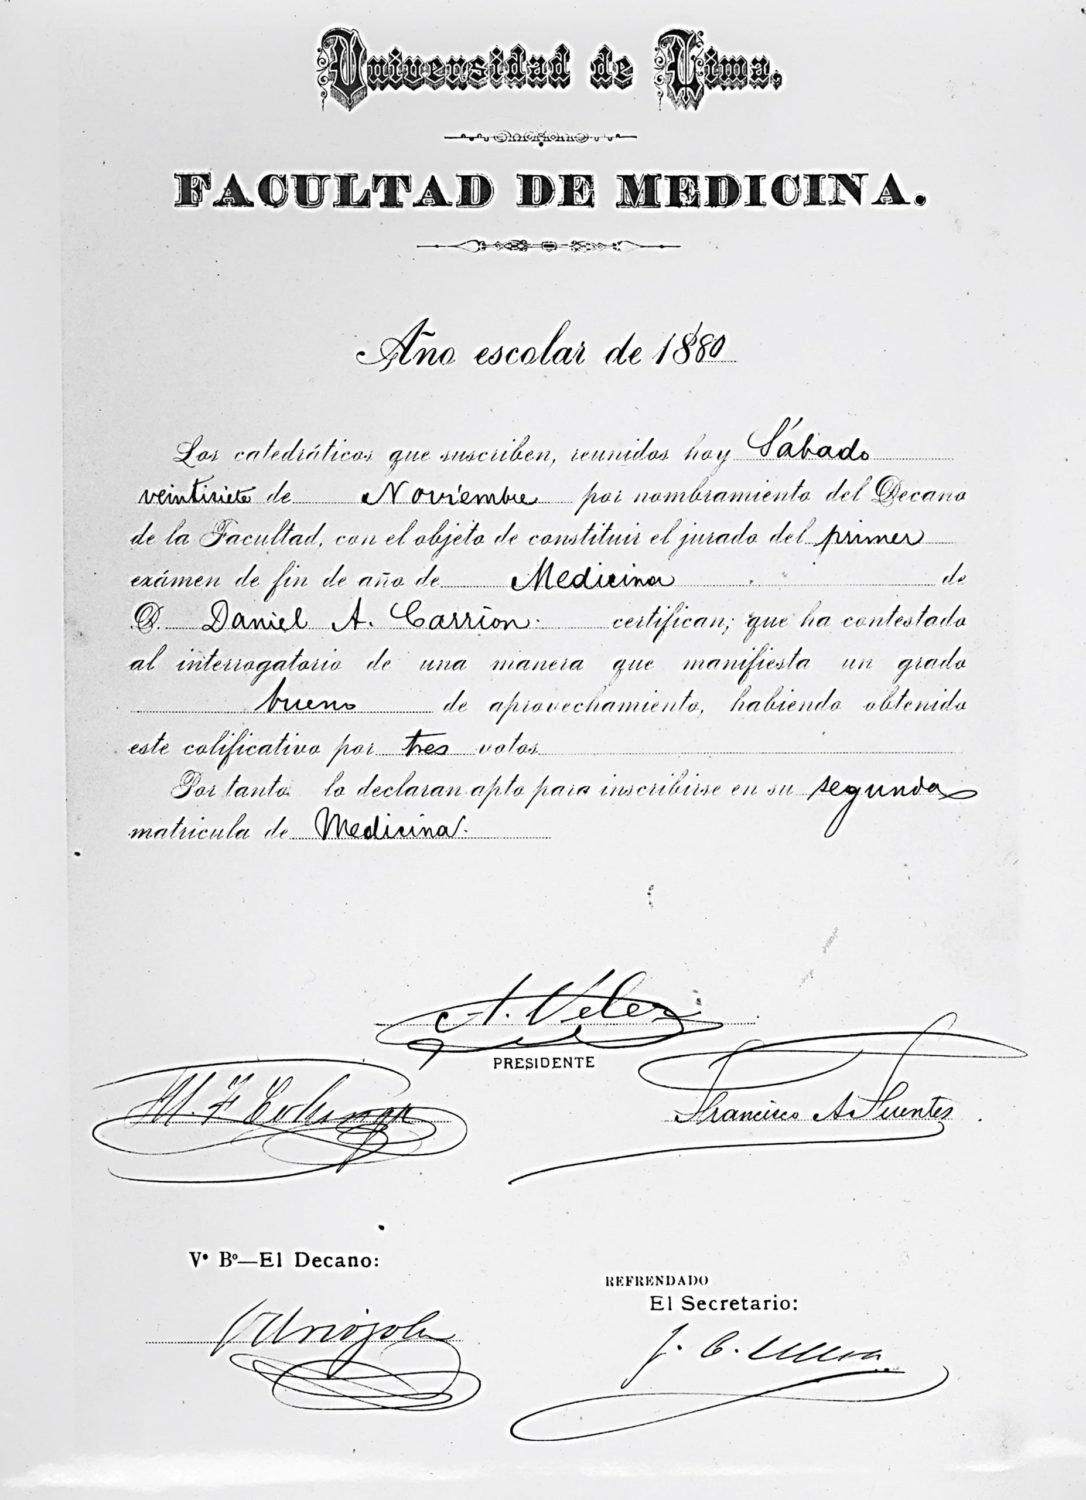 Universidad de Lima.
FACULTAD DE MEDICINA.
Año escolar de 1880
Los catedráticos que suscriben, reunidos hoy Sábado
veintisiete de Noviembre por nombramiento del Decano
de la Facultad, con el objeto de constituir el jurado del primer
exámen de fin de año de Medicina de
D. Daniel A. Carrion. certifican; que ha contestado
al interrogatorio de una manera que manifiesta un grado
bueno de aprovechamiento, habiendo obtenido
este calificativo por tres votos
Por tanto lo declaran apto para inscribirse en su segunda
matricula de Medicina.
A. Velez
PRESIDENTE
M. F.
Francisco A. Fuentes
Vº Bº—El Decano:
REFRENDADO
El Secretario:
J. C.